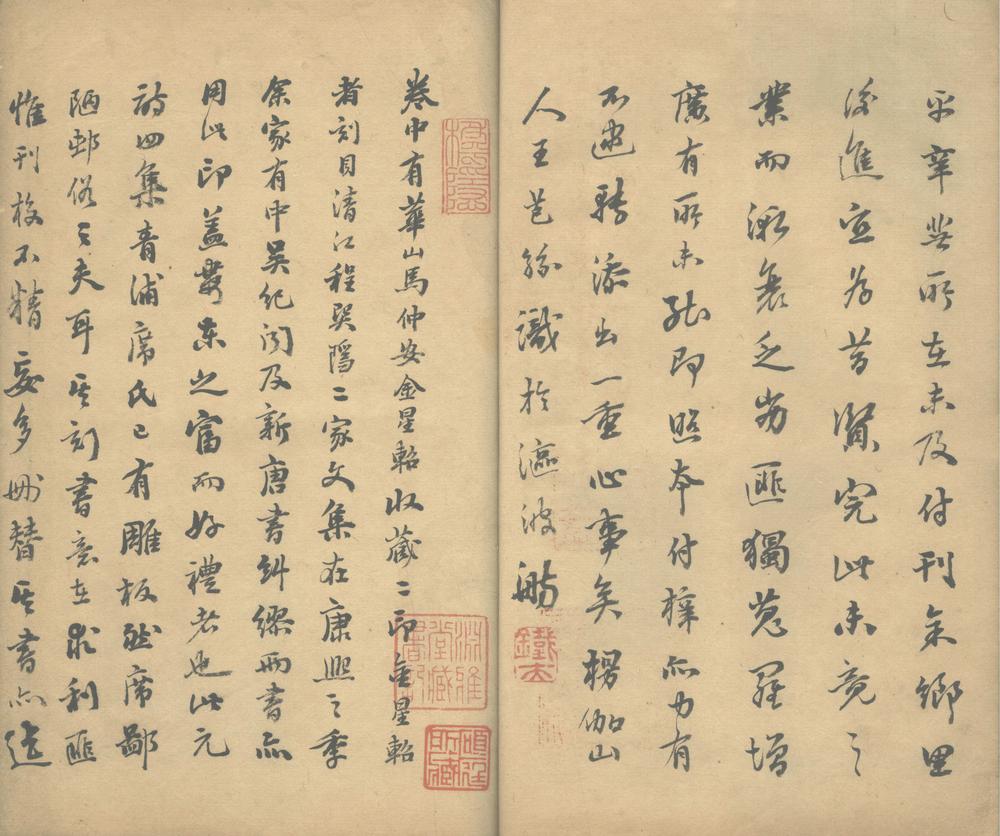 平辜登所在未及付刊余鄉里
後進宜為昔賢完此未竟之
業而漸衰乏劣匪獨蒐羅增
廣有所未能即照本付梓亦力有
不逮轉添出一重心事矣楞伽山
人王芑孫識於漚波舫
鐵夫
卷中有華山馬仲安金星軺收藏二印金星軺
者刻貝清江程巽隱二家文集在康熙之季
余家有中吳紀聞及新唐書糾繆兩書亦
用此印蓋婁東之富而好禮者也此元
詩四集青浦席氏已有雕板然席鄙
陋邨俗之夫耳其刻書意在罔利匪
惟刊校不精妄多刪替其書亦遠
淵雅堂藏書記